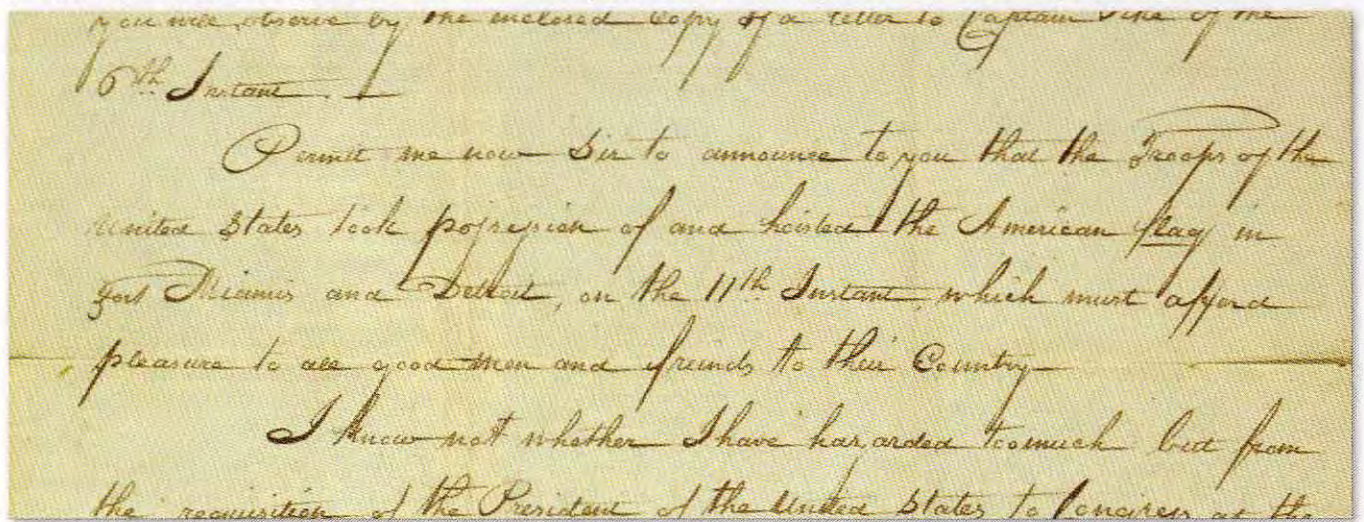 you will observe by the inclosed Copy of a letter to Captain Pike of the
6th Instant. —
Permit me now Sir to announce to you that the Troops of the
United States took possession of and hoisted the American flag in
Fort Miamis and Detroit, on the 11th Instant, which must afford
pleasure to all good men and freinds to their Country
I know not whether I have hazarded too much but from
the requisition of the President of the United States to Congress at the